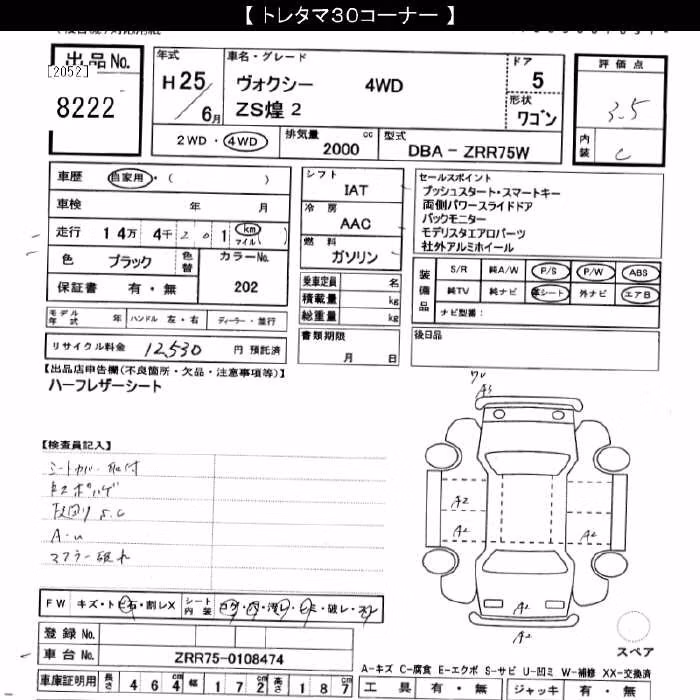 【 トレタマ30コーナー 】
出品No.
[2052]
8222
年式
H 25
6月
車名・グレード
ヴォクシー 4WD
ZS煌 2
ドア
5
形状
ワゴン
2WD・4WD
排気量
2000 cc
型式
DBA - ZRR75W
評価点
3.5
内装
C
車歴 自家用・( )
車検 年 月
走行 14万 4千 201 km マイル
色 ブラック 色替
カラーNo.
202
保証書 有・無
シフト
IAT
冷房
AAC
燃料
ガソリン
乗車定員 名
積載量 kg
総重量 kg
セールスポイント
プッシュスタート・スマートキー
両側パワースライドドア
バックモニター
モデリスタエアロパーツ
社外アルミホイール
装備品
S/R 純A/W P/S P/W ABS
純TV 純ナビ 革シート 外ナビ エアB
ナビ型番:
モデル年式 年 ハンドル 左・右 ディーラー・並行
書類期限
月 日
後日品
リサイクル料金 12,530 円 預託済
【出品店申告欄(不良箇所・欠品・注意事項等)】
ハーフレザーシート
【検査員記入】
シートカバー取付
下回り S.C
A-U
マフラー破れ
A2
A2
A2
A2
A2
FW キズ・トビ石・割レX
シート内装 コゲ・穴・汚レ・シミ・破レ・スレ
登録No.
車台No. ZRR75-0108474
スペア
A-キズ C-腐食 E-エクボ S-サビ U-凹ミ W-補修 XX-交換済
車庫証明用 長さ 464 cm 幅 172 cm 高さ 187 cm
工具 有・無 ジャッキ 有・無